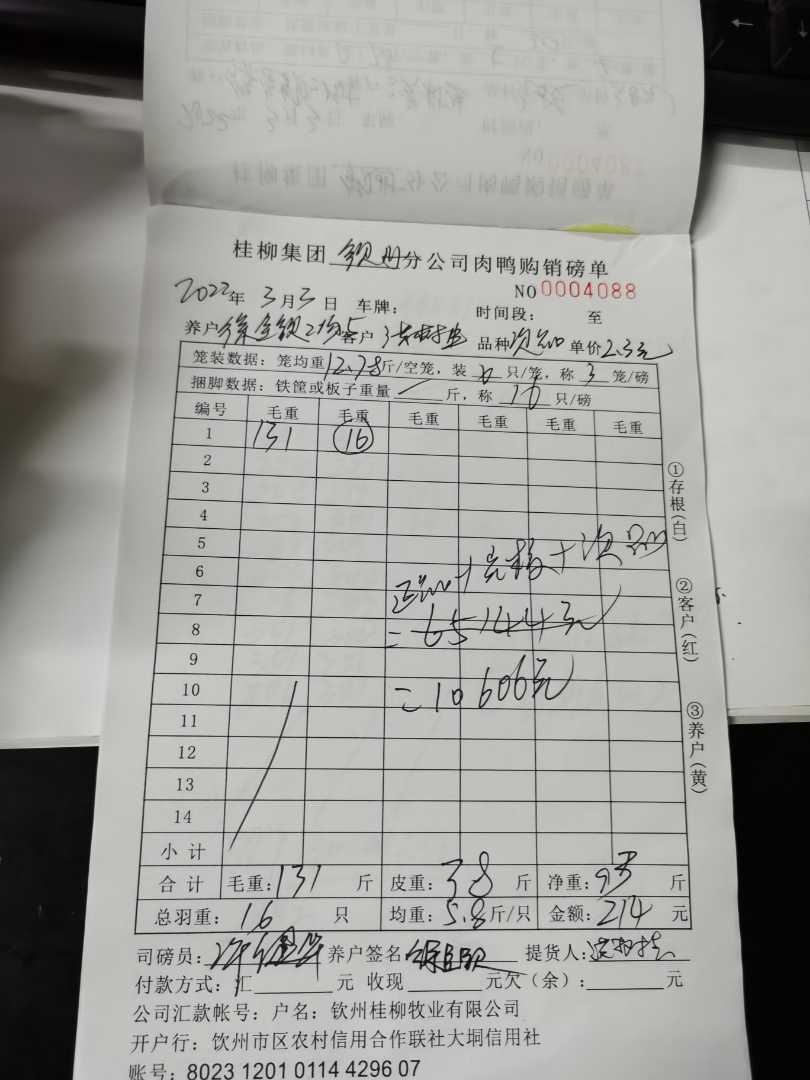 桂柳集团 钦州 分公司肉鸭购销磅单
NO 0004088
2022年 3月3日 车牌: 时间段: 至
养户 客户 品种 次品 单价 2.3元
笼装数据: 笼均重 12.78斤/空笼, 装 6 只/笼, 称 3 笼/磅
捆脚数据: 铁筐或板子重量 斤, 称 只/磅
编号 毛重 毛重 毛重 毛重 毛重 毛重
1 131 16
2
3
4
5
6 正品+克移+次品
7
8 =65144元
9
10 =10606元
11
12
13
14
小计
合计 毛重: 131 斤 皮重: 38 斤 净重: 93 斤
总羽重: 16 只 均重: 5.8斤/只 金额: 214 元
司磅员: 养户签名 提货人:
付款方式: 汇 元 收现 元欠(余): 元
公司汇款帐号: 户名: 钦州桂柳牧业有限公司
开户行: 钦州市区农村信用合作联社大垌信用社
账号: 8023 1201 0114 4296 07
①存根(白)
②客户(红)
③养户(黄)